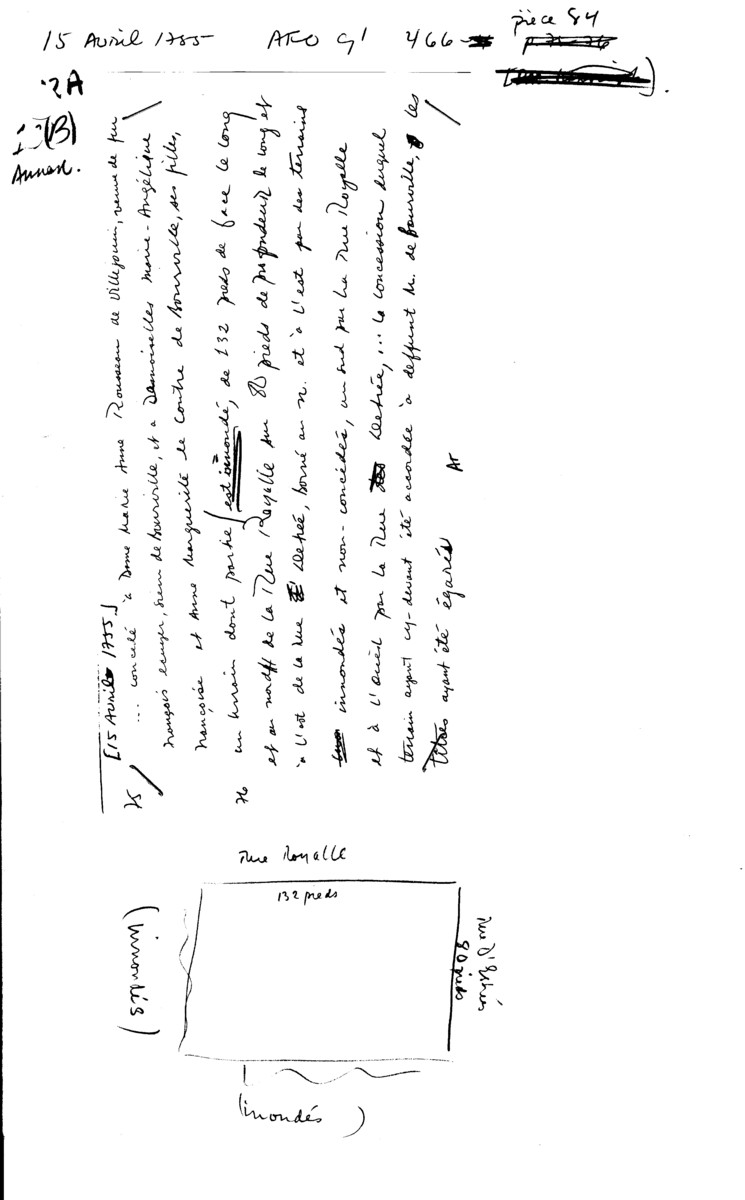 15 Avril 1755 AFO G1 466 pièce 84
2A
(B)
Annex.
[15 Avril 1755]
75 ... concédé à Dame Marie Anne Rousseau de Villejouin, veuve de feu
françois ecuyer, sieur de Bourville, et a Damoiselles Marie-Angélique
françoise et Anne Marguerite le Contre de Bourville, ses filles,
un terrain dont partie est innondé, de 132 pieds de face le long
76 et au nord de la Rue Royalle sur 80 pieds de profondeur le long et
à l'est de la Rue Detreé, borné au n. et à l'est par des terrains
innondés et non-concédés, au sud par la Rue Royalle
et à l'ouest par la Rue Detrée, ... la concession duquel
terrain ayant cy-devant été accordée à deffunt M. de Bourville, les
titres ayant été égarés
Rue Royalle
132 pieds
80 pieds
Rue D'Estrées
(innondés)
(inondés)